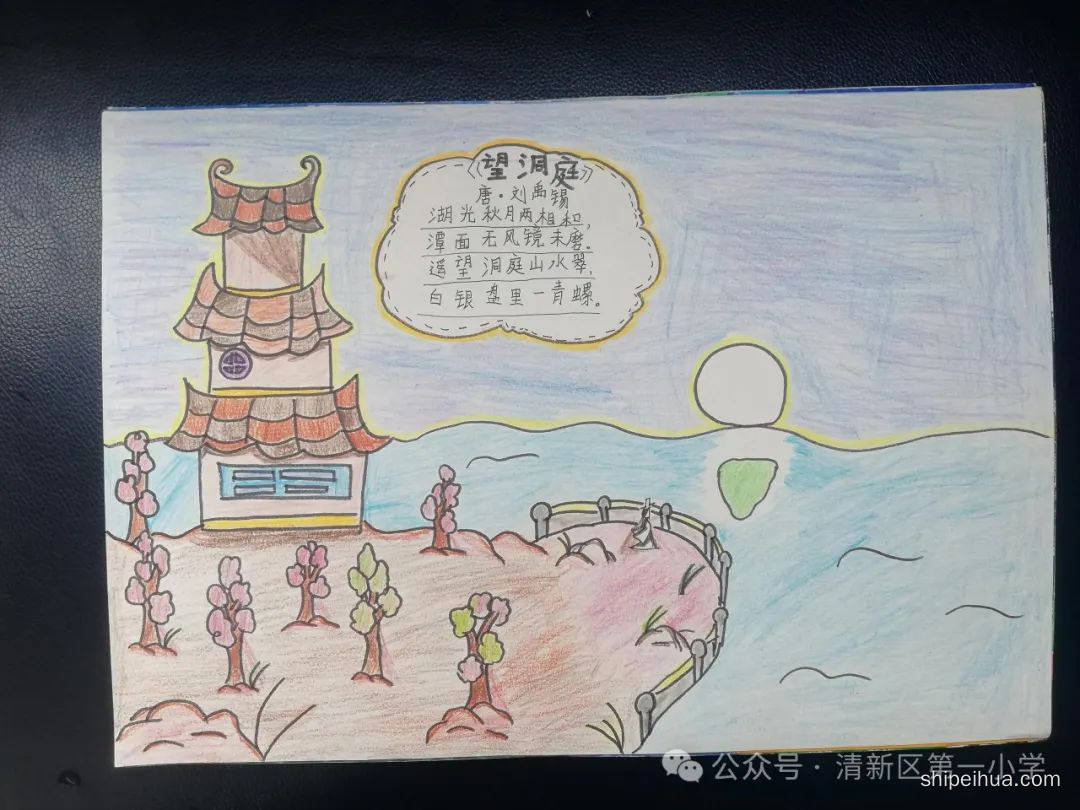 《望洞庭》
唐·刘禹锡
湖光秋月两相和，
潭面无风镜未磨。
遥望洞庭山水翠，
白银盘里一青螺。
公众号·清新区第一小学
shipeihua.com